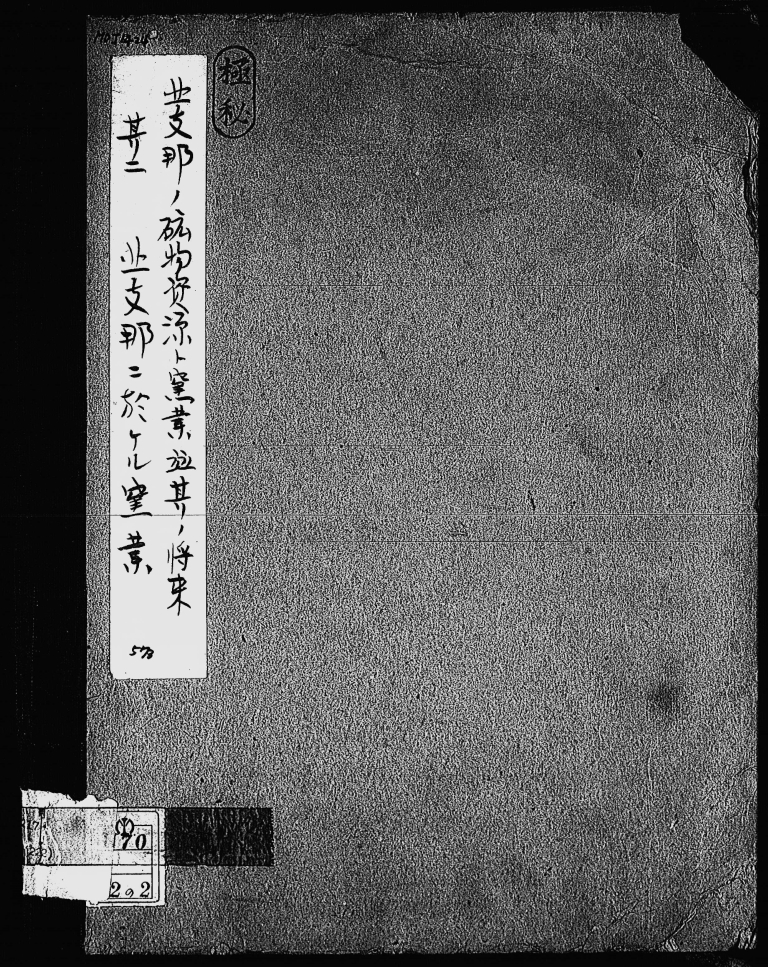 極秘
北支那ノ砿物資源ト窯業並其ノ将来
其二 北支那ニ於ケル窯業
70
2の2